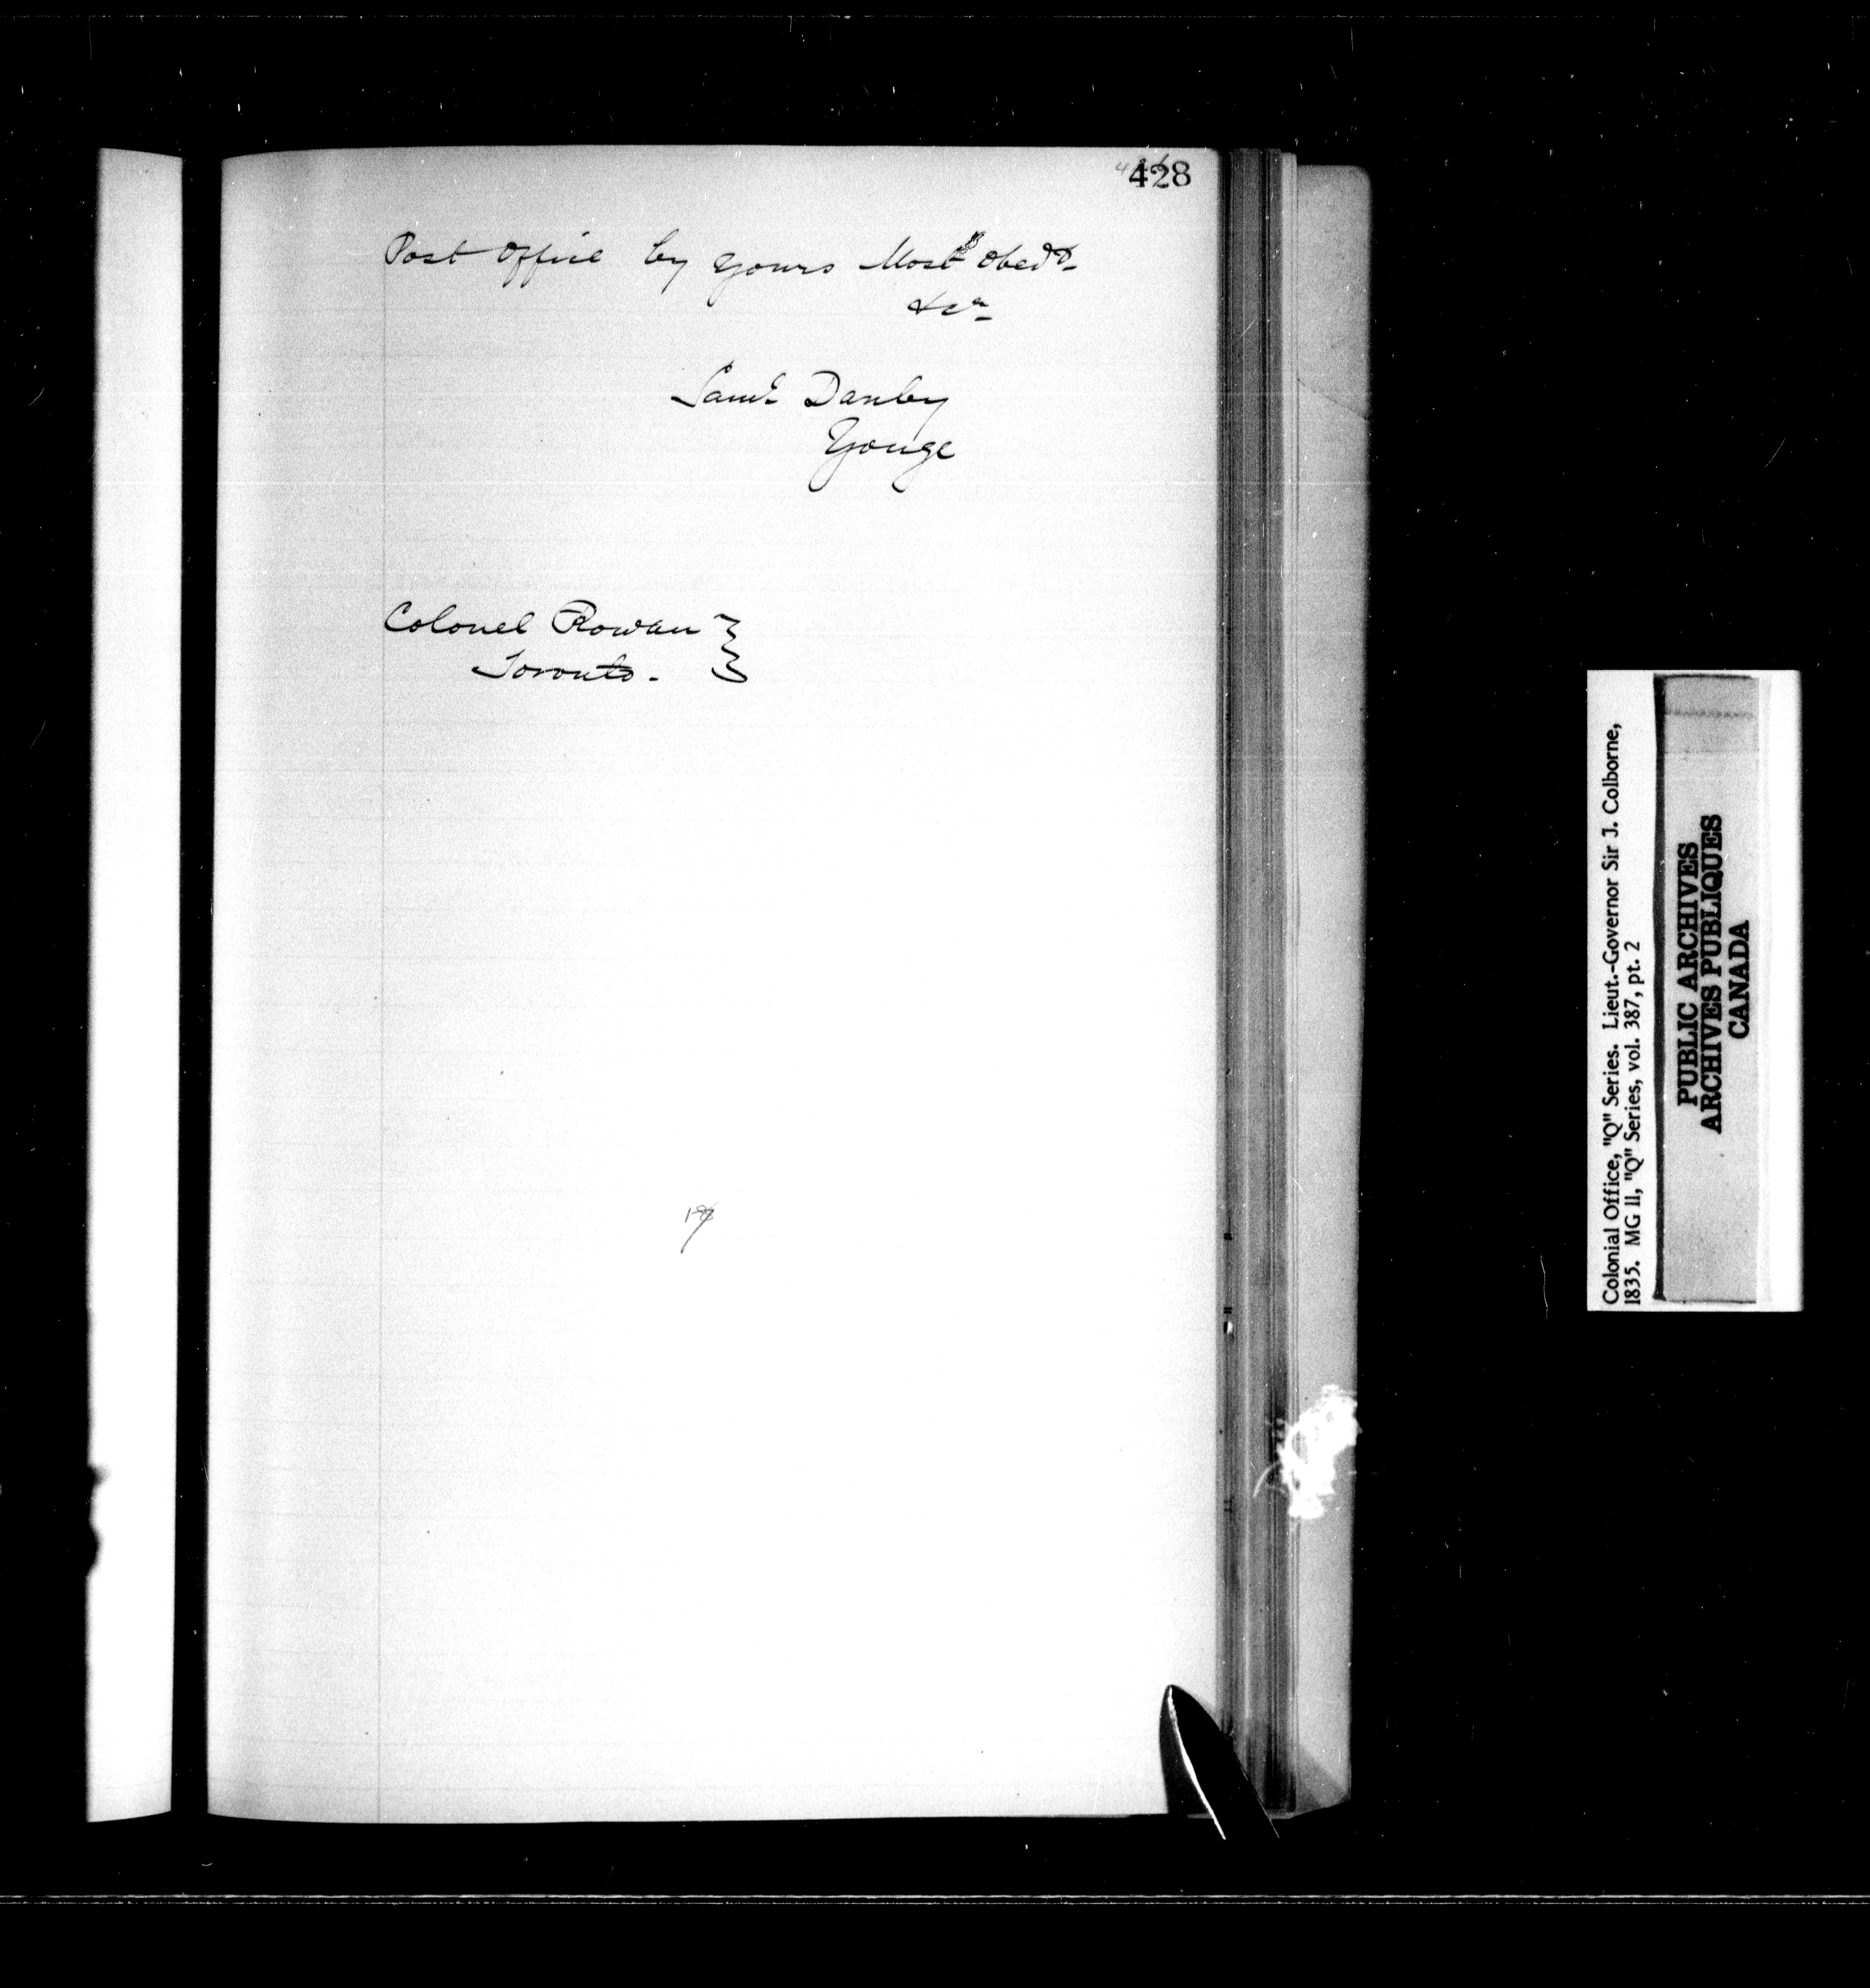 428
Post Office by yours Most Obedt
&c
Saml Danby
Yonge
Colonel Rowan }
Toronto. }
Colonial Office, "Q" Series. Lieut.-Governor Sir J. Colborne,
1835. MG 11, "Q" Series, vol. 387, pt. 2
PUBLIC ARCHIVES
ARCHIVES PUBLIQUES
CANADA